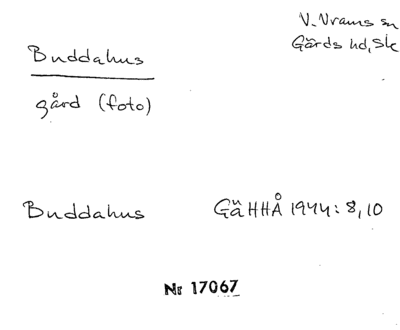 V. Vrams sn
Gärds hd, Sk
Buddahus
gård (foto)
Buddahus GäHHÅ 1944: 8, 10
Nr 17067